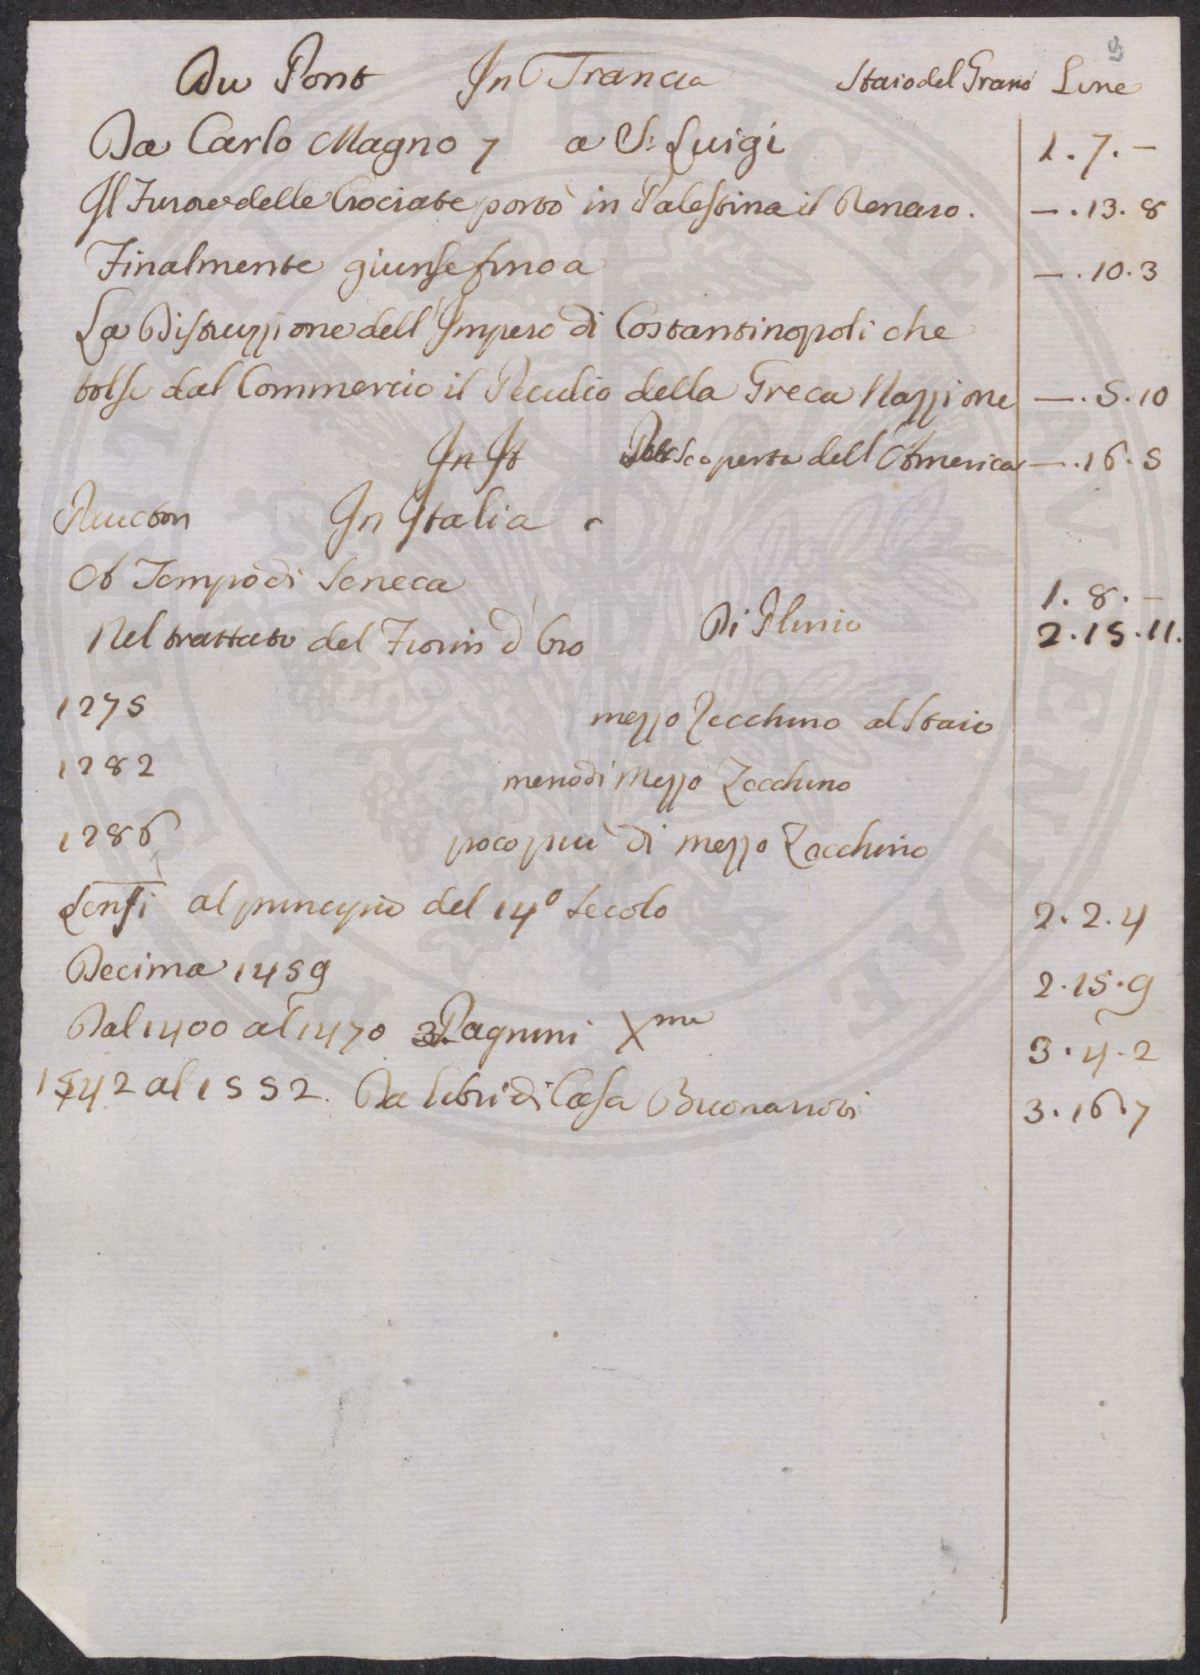 Du Pont In Francia Staio del Grano Lire
Da Carlo Magno 7 a S: Luigi 1.7.-
Il Furore delle Crociate portò in Palestina il Denaro. -.13.8
Finalmente giunse fino a -.10.3
La Distruzzione dell'Impero di Costantinopoli che
tolse dal Commercio il Peculio della Greca Nazzione -.5.10
In It Scoperta dell'America -.16.5
Paucton In Italia
A Tempo di Seneca 1.8.-
Nel trattato del Fiorin d'Oro Di Plinio 2.15.11.
1275 mezzo Zecchino al Staio
1282 meno di Mezzo Zecchino
1286 poco più di mezzo Zecchino
Lensi al principio del 14º Secolo 2.2.4
Decima 1459 2.15.9
Dal 1400 al 1470 Pagnini Xma 3.4.2
1542 al 1552. Da libri di Casa Buonarroti 3.16.7